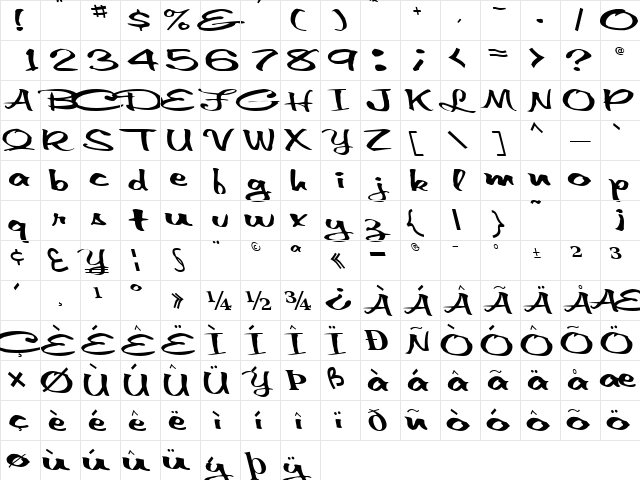 ! " # $ % & ' ( ) * + , - . / 0
1 2 3 4 5 6 7 8 9 : ; < = > ? @
A B C D E F G H I J K L M N O P
Q R S T U V W X Y Z [ \ ] ^ _ `
a b c d e f g h i j k l m n o p
q r s t u v w x y z { | } ~ ¡
¢ £ ¥ ¦ § ¨ © ª « ¬ ® ¯ ° ± ² ³
´ ¸ ¹ º » ¼ ½ ¾ ¿ À Á Â Ã Ä Å Æ
Ç È É Ê Ë Ì Í Î Ï Ð Ñ Ò Ó Ô Õ Ö
× Ø Ù Ú Û Ü Ý Þ ß à á â ã ä å æ
ç è é ê ë ì í î ï ð ñ ò ó ô õ ö
ø ù ú û ü ý þ ÿ